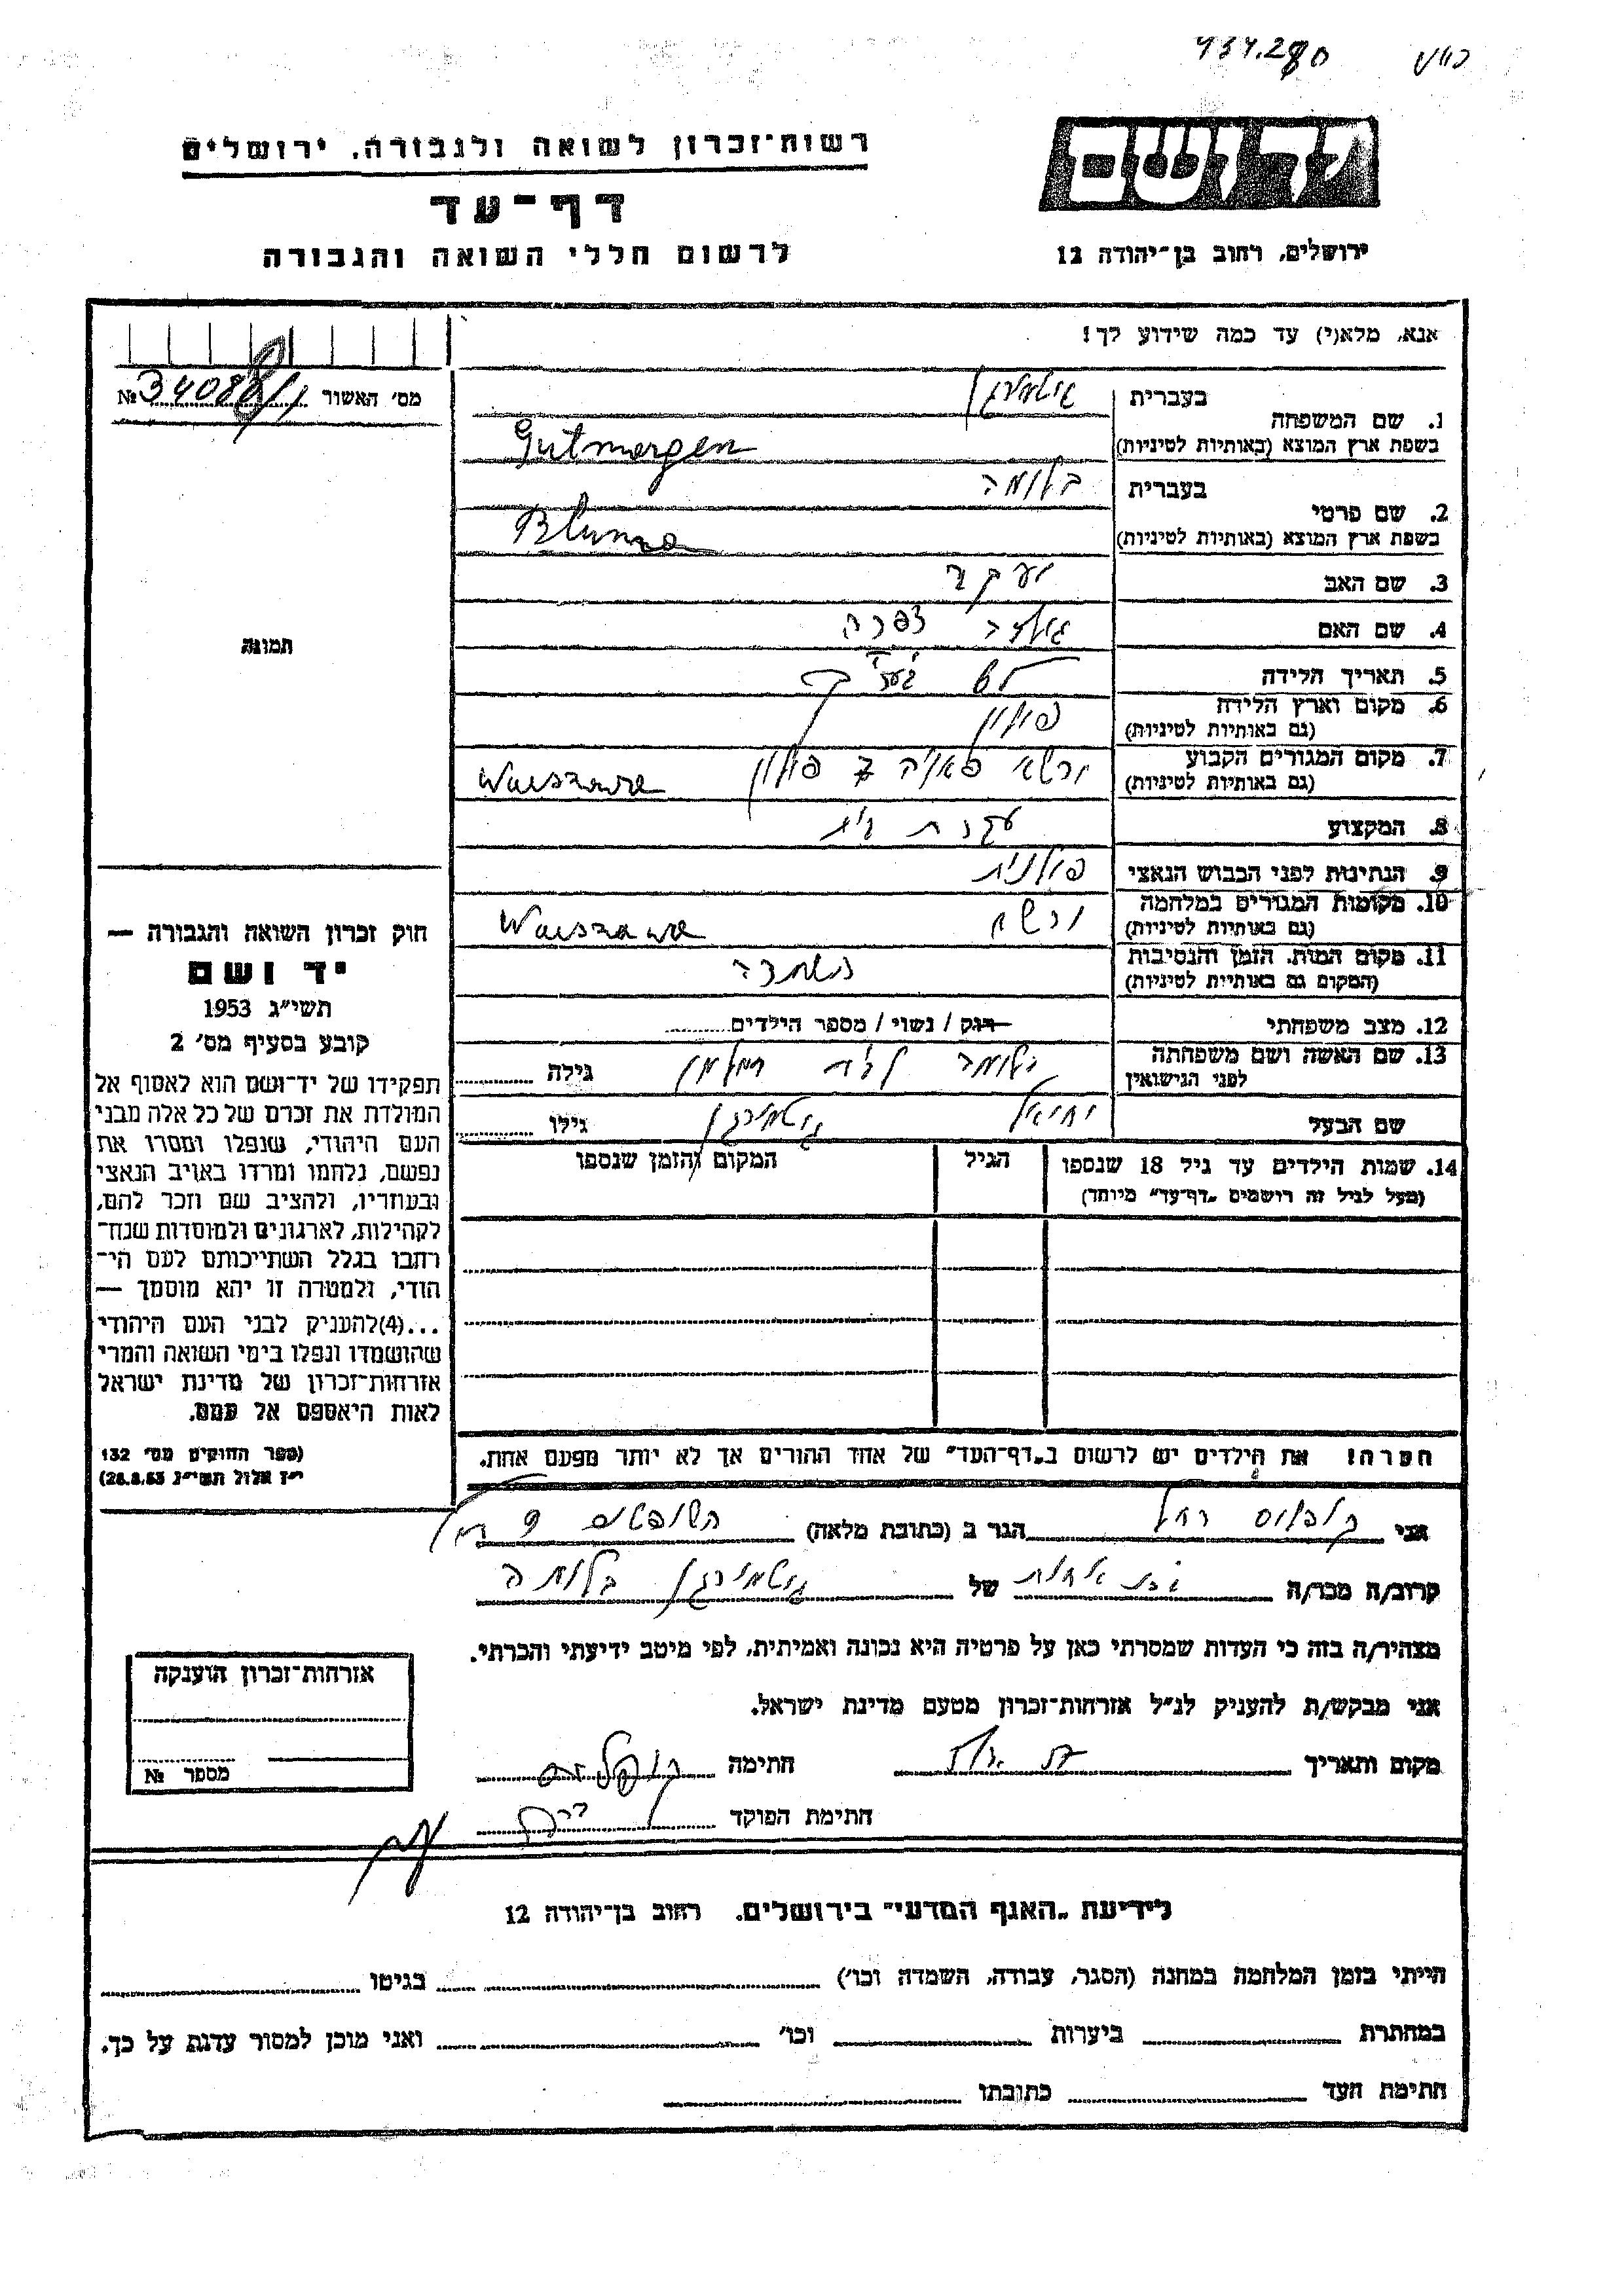 434.280
ידושם
ירושלים, רחוב בן־יהודה 12
רשות־זכרון לשואה ולגבורה, ירושלים
דף־עד
לרשום חללי השואה והגבורה
אנא, מלא(י) עד כמה שידוע לך!
מס׳ האשור № 34088/1
1. שם המשפחה בעברית גוטמורגן
בשפת ארץ המוצא (באותיות לטיניות) Gutmorgen
2. שם פרטי בעברית בלומה
בשפת ארץ המוצא (באותיות לטיניות) Bluma
3. שם האב יעקב
4. שם האם צפרה
5. תאריך הלידה
6. מקום וארץ הלידה
(גם באותיות לטיניות) פולין
7. מקום המגורים הקבוע
(גם באותיות לטיניות) ורשא פולין Warszawa
8. המקצוע עקרת בית
9. הנתינות לפני הכבוש הנאצי פולנית
10. מקומות המגורים במלחמה
(גם באותיות לטיניות) ורשא Warszawa
11. מקום המות, הזמן והנסיבות
(המקום גם באותיית לטיניות) השמדה
12. מצב משפחתי רווק / נשוי / מספר הילדים
13. שם האשה ושם משפחתה
לפני הנישואין בלומה לבית גילה
שם הבעל יחיאל גוטמורגן גילו
14. שמות הילדים עד גיל 18 שנספו הגיל המקום והזמן שנספו
(מעל לגיל זה רושמים „דף־עד” מיוחד)
הערה! את הילדים יש לרשום ב„דף־העד” של אחד ההורים אך לא יותר מפעם אחת.
תמונה
חוק זכרון השואה והגבורה —
יד ושם
תשי״ג 1953
קובע בסעיף מס׳ 2
תפקידו של יד־ושם הוא לאסוף אל
המולדת את זכרם של כל אלה מבני
העם היהודי, שנפלו ומסרו את
נפשם, נלחמו ומרדו באויב הנאצי
ובעוזריו, ולהציב שם וזכר להם,
לקהילות, לארגונים ולמוסדות שנח־
רבו בגלל השתייכותם לעם הי־
הודי, ולמטרה זו יהא מוסמך —
...(4)להעניק לבני העם היהודי
שהושמדו ונפלו בימי השואה והמרי
אזרחות־זכרון של מדינת ישראל
לאות היאספם אל עמם.
(ספר החוקים מס׳ 132
י״ז אלול תשי״ג 28.8.53)
אני רחל הגר ב (כתובת מלאה) השופטים 9
קרוב/ה מכר/ה בת אחות של גוטמורגן בלומה
מצהיר/ה בזה כי העדות שמסרתי כאן על פרטיה היא נכונה ואמיתית, לפי מיטב ידיעתי והכרתי.
אני מבקש/ת להעניק לנ״ל אזרחות־זכרון מטעם מדינת ישראל.
מקום ותאריך חתימה
חתימת הפוקד
אזרחות־זכרון הוענקה
מספר №
לידיעת „האגף המדעי״ בירושלים. רחוב בן־יהודה 12
הייתי בזמן המלחמה במחנה (הסגר, עבודה, השמדה וכו׳) בגיטו
במחתרת ביערות וכו׳ ואני מוכן למסור עדות על כך.
חתימת העד כתובתו